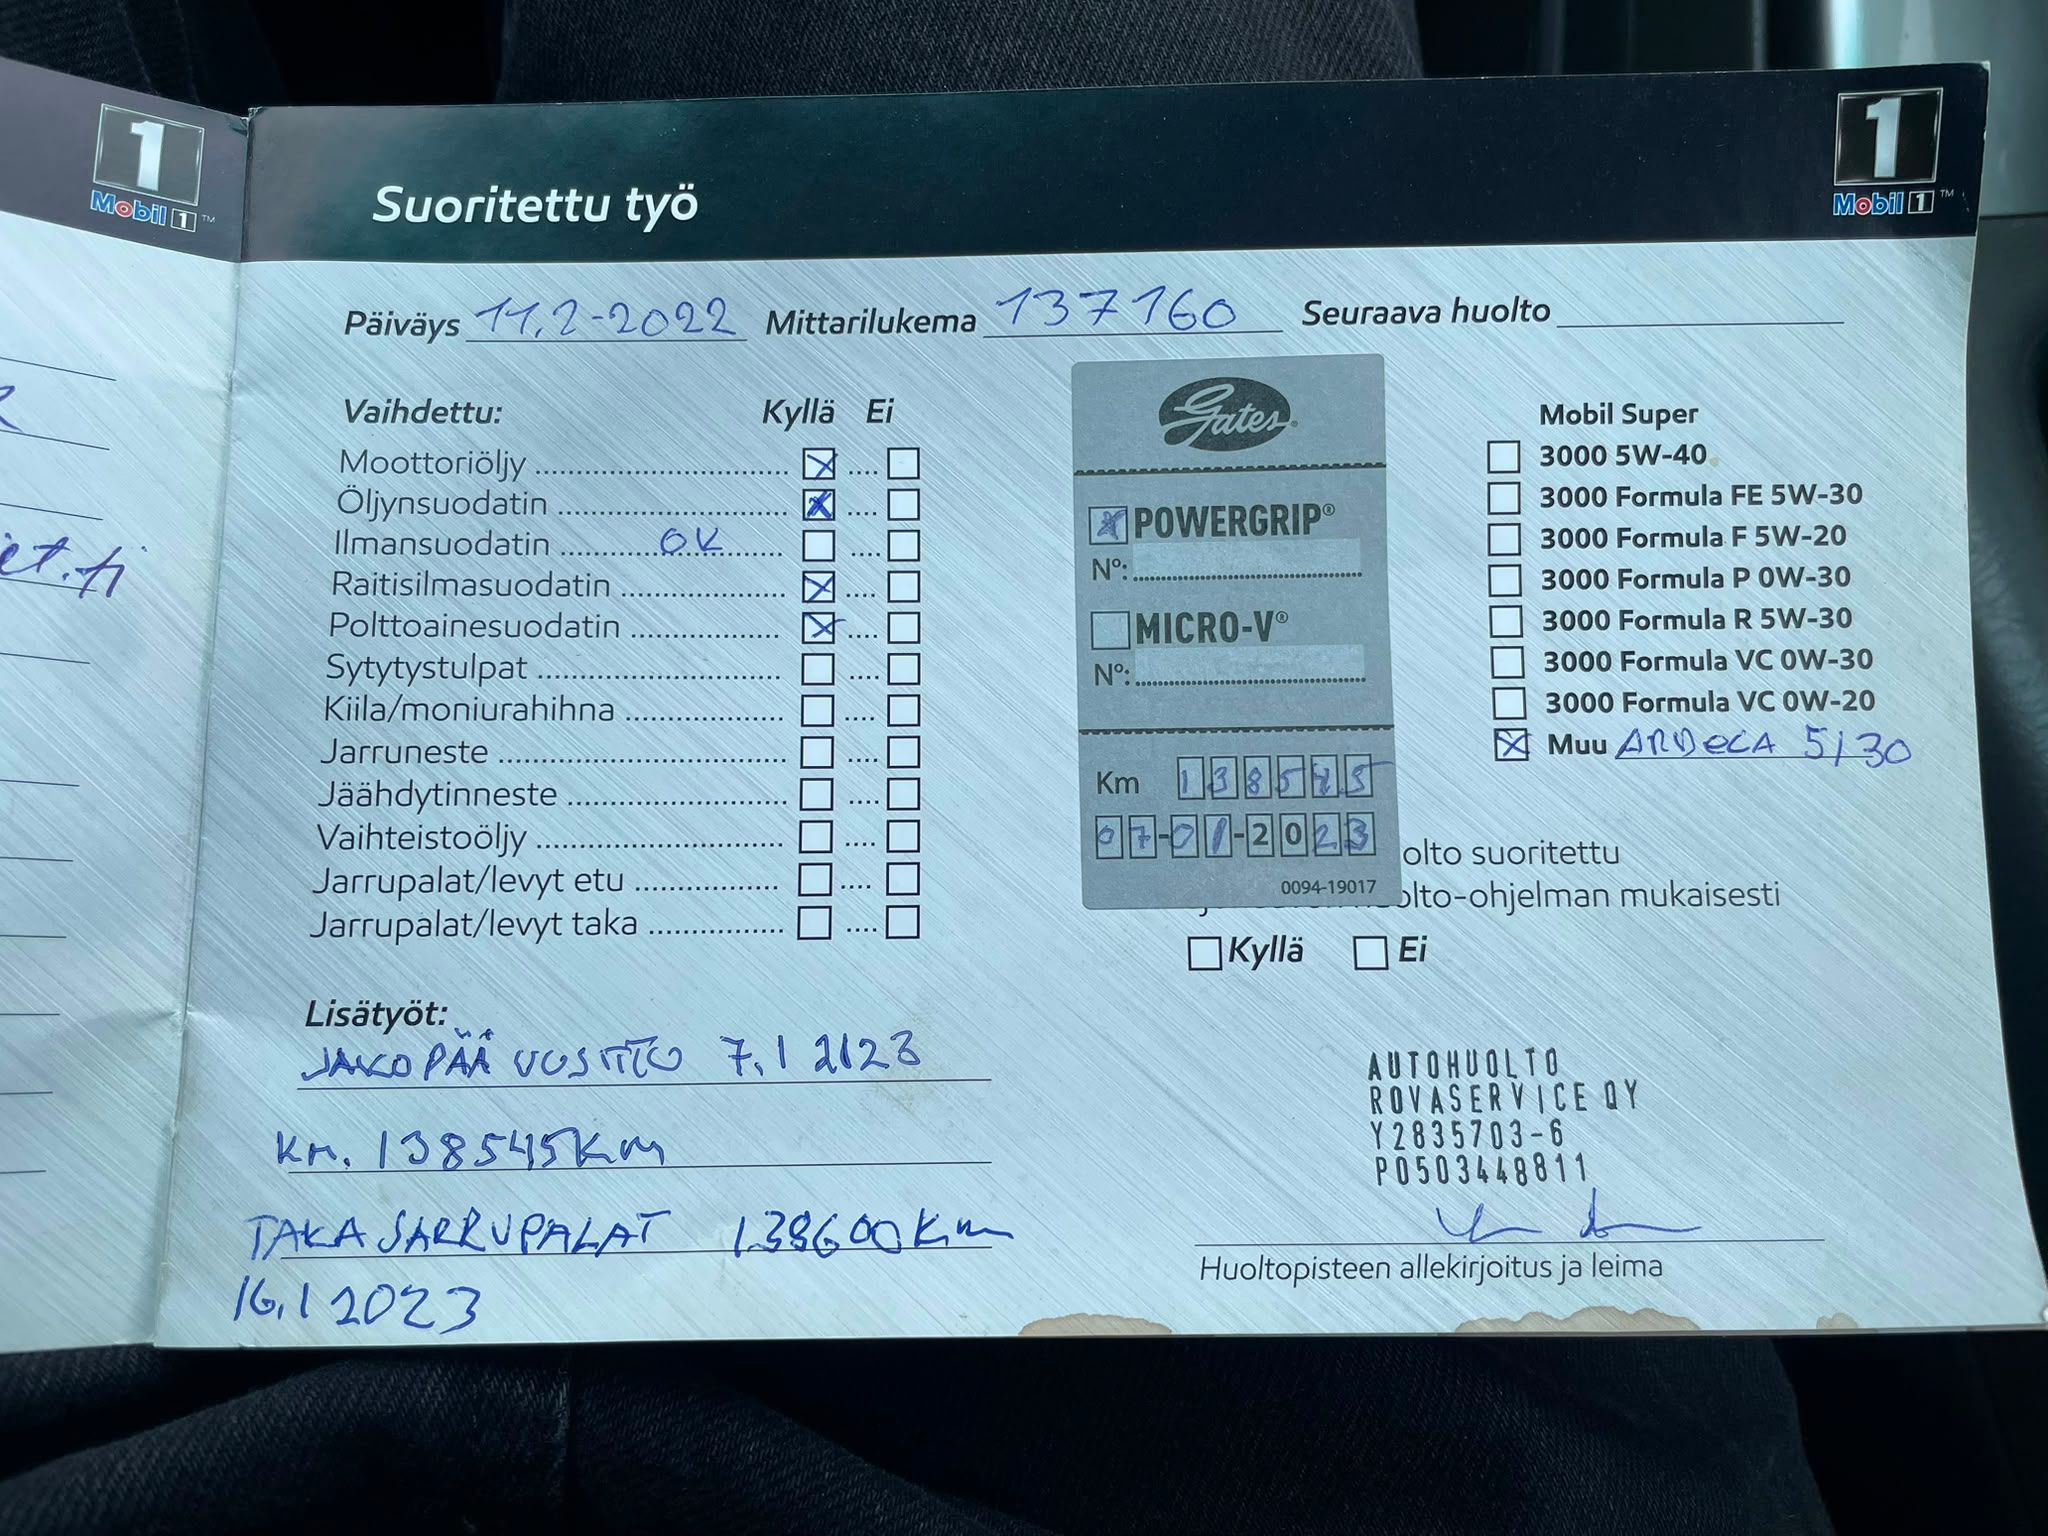 1
Mobil 1™
et.fi
1
Mobil 1™
Suoritettu työ
Päiväys 11.2-2022 Mittarilukema 137160 Seuraava huolto
Vaihdettu: Kyllä Ei
Moottoriöljy
Öljynsuodatin
Ilmansuodatin OK
Raitisilmasuodatin
Polttoainesuodatin
Sytytystulpat
Kiila/moniurahihna
Jarruneste
Jäähdytinneste
Vaihteistoöljy
Jarrupalat/levyt etu
Jarrupalat/levyt taka
Gates®
POWERGRIP®
Nº:
MICRO-V®
Nº:
Km 138545
07-01-2023
0094-19017
Mobil Super
3000 5W-40
3000 Formula FE 5W-30
3000 Formula F 5W-20
3000 Formula P 0W-30
3000 Formula R 5W-30
3000 Formula VC 0W-30
3000 Formula VC 0W-20
Muu ARDECA 5/30
olto suoritettu
olto-ohjelman mukaisesti
Kyllä Ei
Lisätyöt:
JAKOPÄÄ 7.1 2123
Km. 138545Km
TAKAJARRUPALAT 138600Km
16.1 2023
AUTOHUOLTO
ROVASERVICE OY
Y2835703-6
P0503448811
Huoltopisteen allekirjoitus ja leima